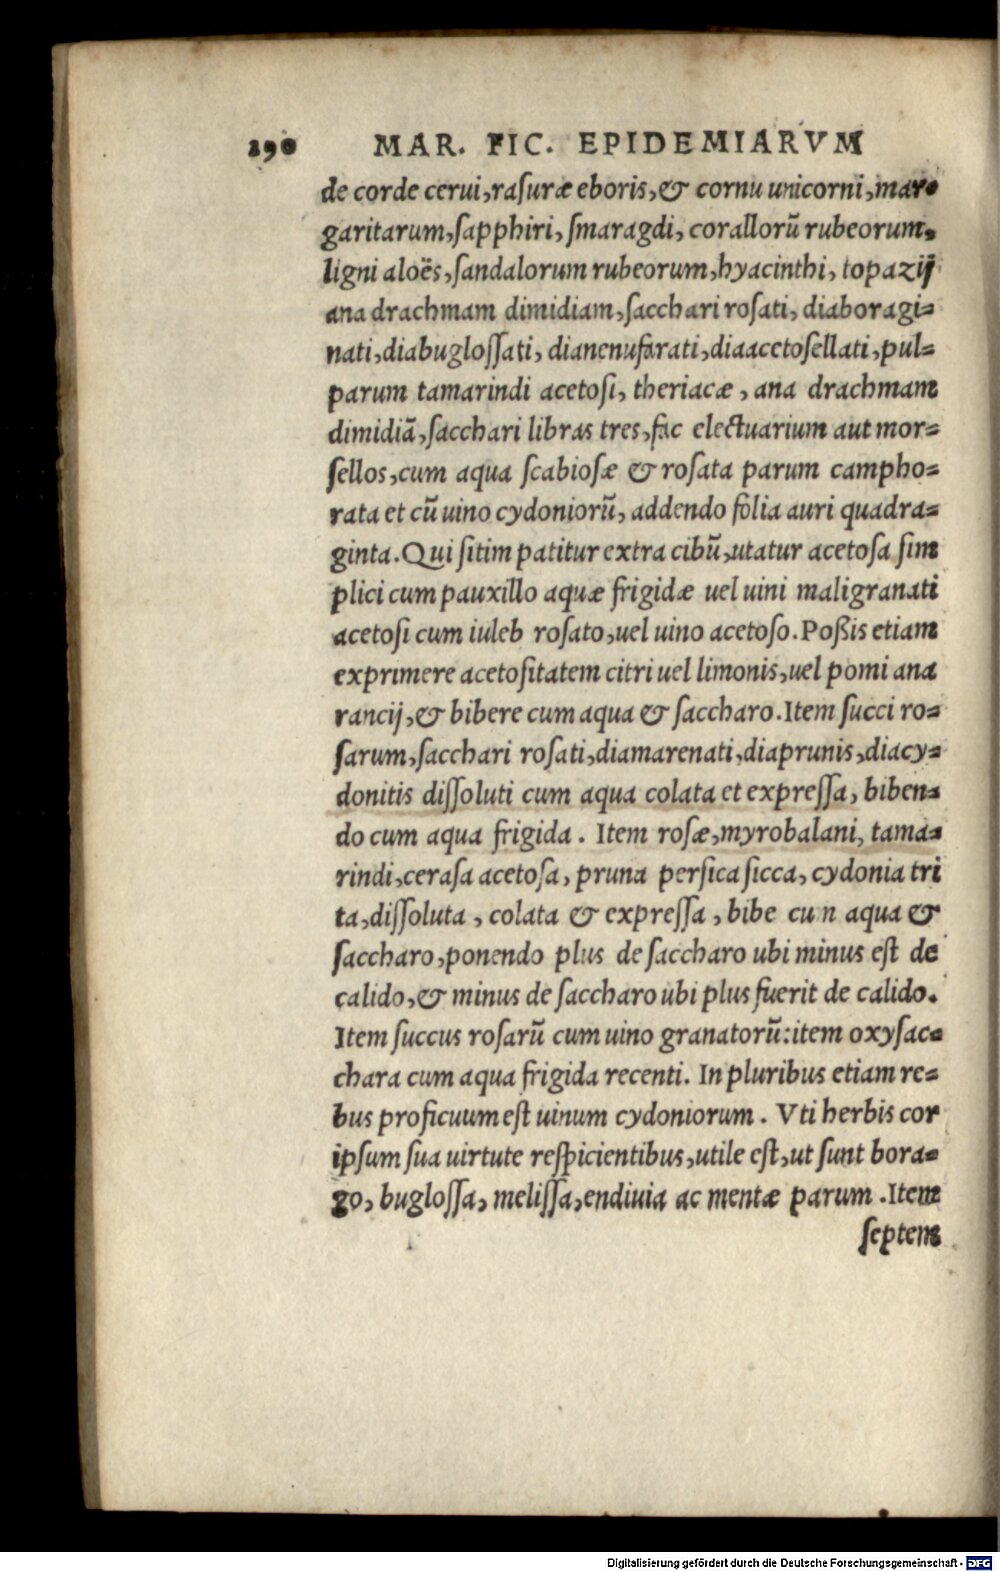 290 MAR. FIC. EPIDEMIARVM
de corde cerui, rasuræ eboris, & cornu unicorni, mar-
garitarum, sapphiri, smaragdi, corallorū rubeorum,
ligni aloës, sandalorum rubeorum, hyacinthi, topazij
ana drachmam dimidiam, sacchari rosati, diaboragi-
nati, diabuglossati, dianenufarati, diaacetosellati, pul-
parum tamarindi acetosi, theriacæ, ana drachmam
dimidiā, sacchari libras tres, fac electuarium aut mor-
sellos, cum aqua scabiosæ & rosata parum campho-
rata et cū uino cydoniorū, addendo folia auri quadra-
ginta. Qui sitim patitur extra cibū, utatur acetosa sim
plici cum pauxillo aquæ frigidæ uel uini maligranati
acetosi cum iuleb rosato, uel uino acetoso. Poßis etiam
exprimere acetositatem citri uel limonis, uel pomi ana
rancij, & bibere cum aqua & saccharo. Item succi ro-
sarum, sacchari rosati, diamarenati, diaprunis, diacy-
donitis dissoluti cum aqua colata et expressa, biben-
do cum aqua frigida. Item rosæ, myrobalani, tama-
rindi, cerasa acetosa, pruna persica sicca, cydonia tri
ta, dissoluta, colata & expressa, bibe cum aqua &
saccharo, ponendo plus de saccharo ubi minus est de
calido, & minus de saccharo ubi plus fuerit de calido.
Item succus rosarū cum uino granatorū: item oxysac-
chara cum aqua frigida recenti. In pluribus etiam re-
bus proficuum est uinum cydoniorum. Vti herbis cor
ipsum sua uirtute respicientibus, utile est, ut sunt bora-
go, buglossa, melissa, endiuia ac mentæ parum. Item
septem
Digitalisierung gefördert durch die Deutsche Forschungsgemeinschaft - DFG